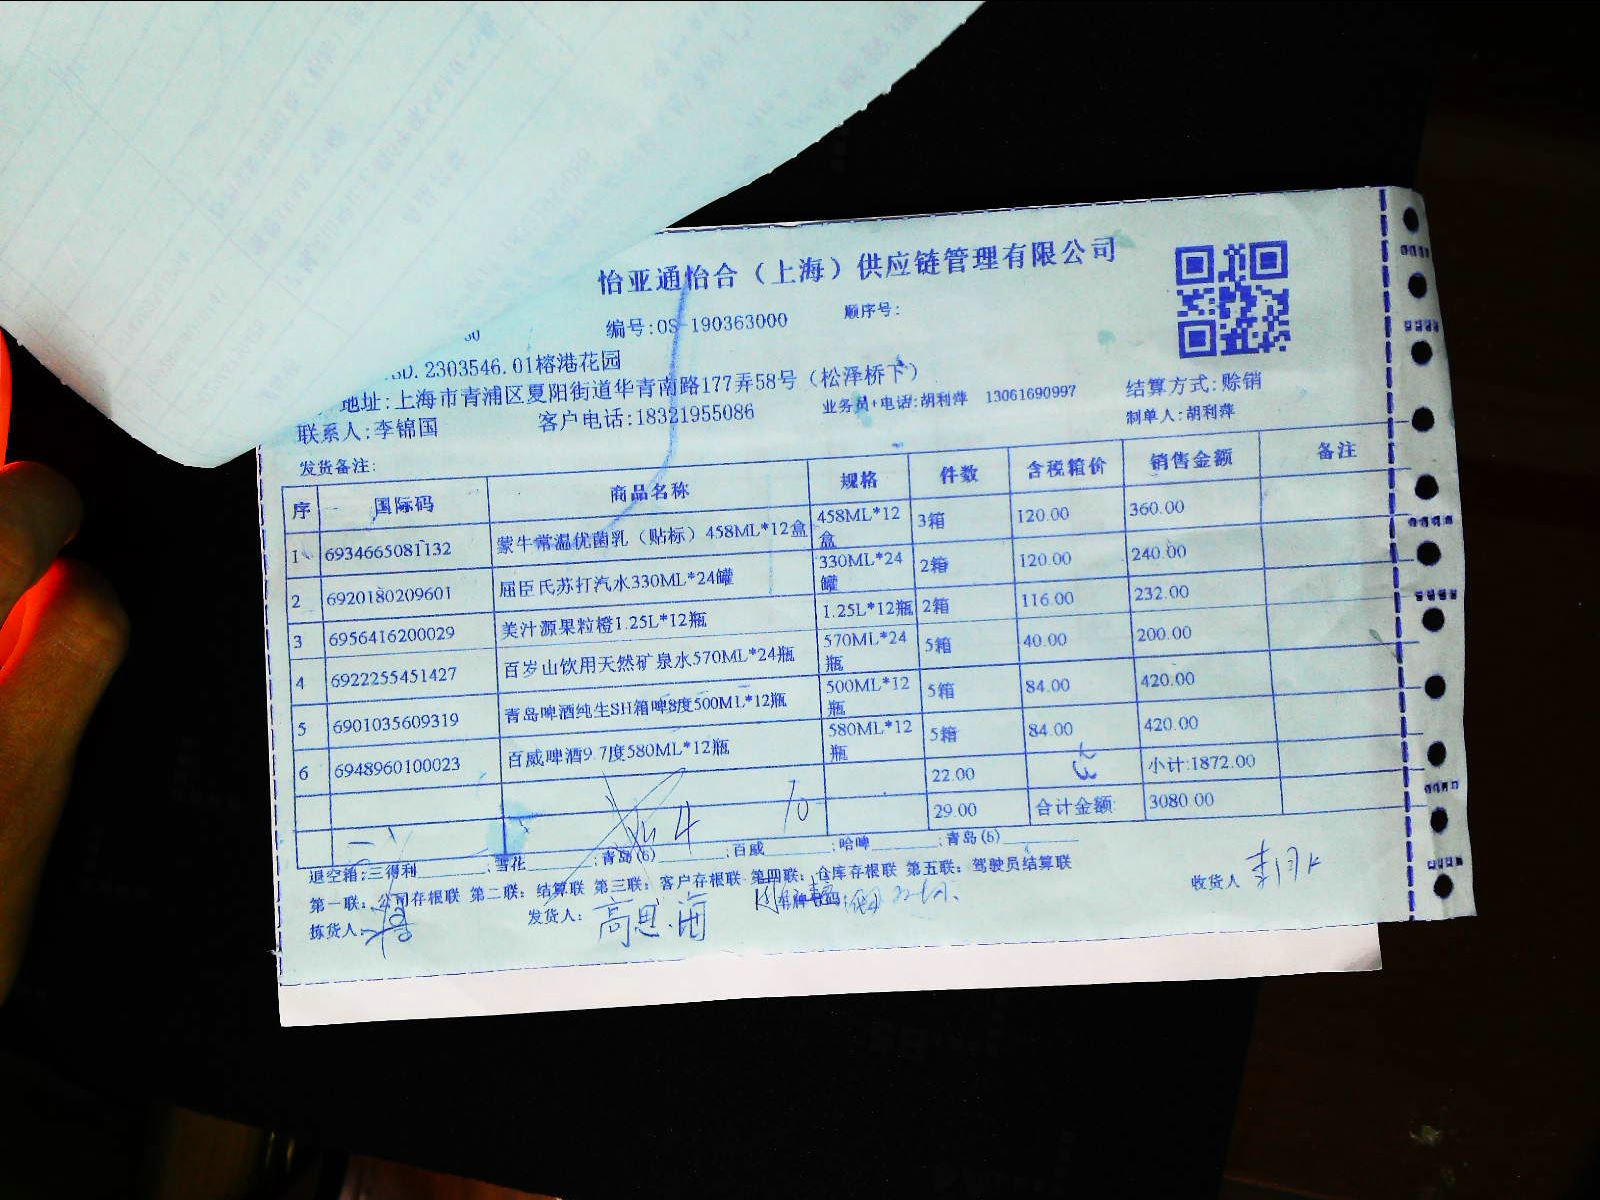 怡亚通怡合（上海）供应链管理有限公司
编号:OS-190363000 顺序号:
.2303546.01榕港花园
地址:上海市青浦区夏阳街道华青南路177弄58号（松泽桥下）
联系人:李锦国 客户电话:18321955086 业务员+电话:胡利萍 13061690997 结算方式:赊销
制单人:胡利萍
发货备注:
序 国际码 商品名称 规格 件数 含税箱价 销售金额 备注
1 6934665081132 蒙牛常温优菌乳（贴标）458ML*12盒 458ML*12盒 3箱 120.00 360.00
2 6920180209601 屈臣氏苏打汽水330ML*24罐 330ML*24罐 2箱 120.00 240.00
3 6956416200029 美汁源果粒橙1.25L*12瓶 1.25L*12瓶 2箱 116.00 232.00
4 6922255451427 百岁山饮用天然矿泉水570ML*24瓶 570ML*24瓶 5箱 40.00 200.00
5 6901035609319 青岛啤酒纯生SH箱啤8度500ML*12瓶 500ML*12瓶 5箱 84.00 420.00
6 6948960100023 百威啤酒9.7度580ML*12瓶 580ML*12瓶 5箱 84.00 420.00
22.00 小计:1872.00
29.00 合计金额: 3080.00
退空箱:三得利 ;雪花 ;青岛(6) ;百威 ;哈啤 ;青岛(6)
第一联：公司存根联 第二联：结算联 第三联：客户存根联 第四联：仓库存根联 第五联：驾驶员结算联
拣货人: 发货人: 高思海 车牌号码: 收货人